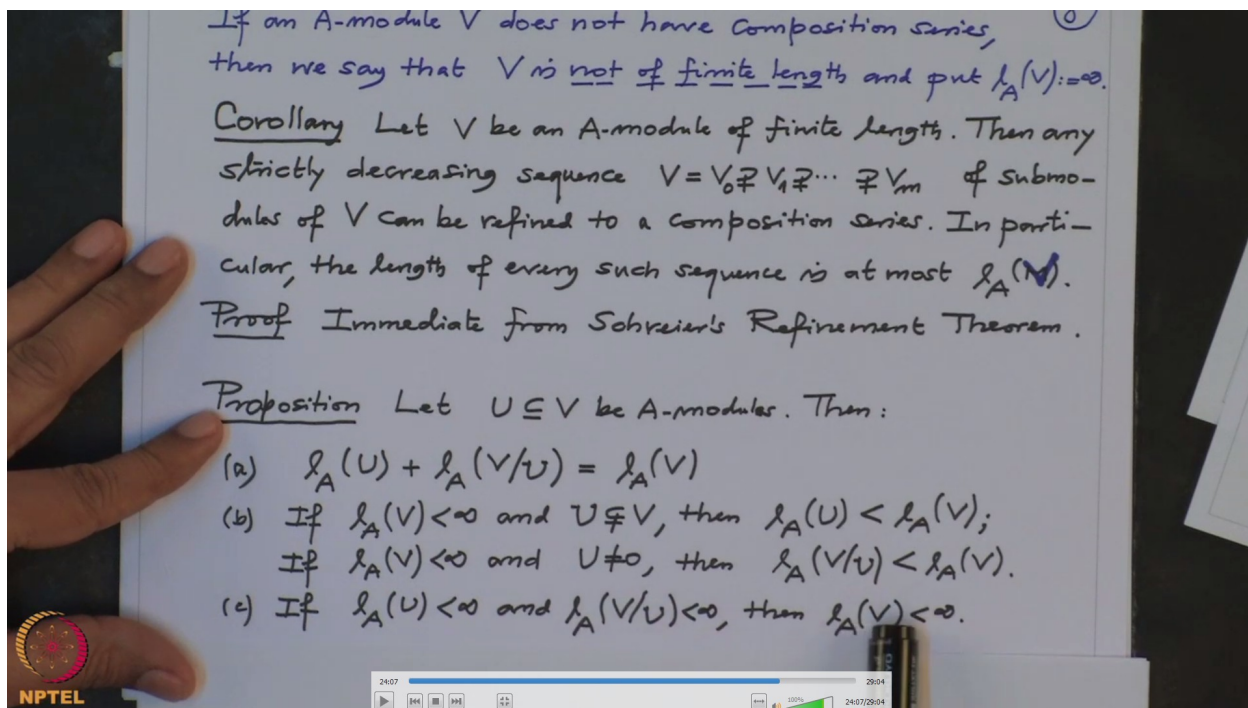 If an A-module V does not have composition series, 8
then we say that V is not of finite length and put l_A(V):=∞.
Corollary Let V be an A-module of finite length. Then any
strictly decreasing sequence V = V₀ ⊋ V₁ ⊋ ⋯ ⊋ Vₘ of submo-
dules of V can be refined to a composition series. In parti-
cular, the length of every such sequence is at most l_A(V).
Proof Immediate from Schreier's Refinement Theorem.
Proposition Let U ⊆ V be A-modules. Then:
(a) l_A(U) + l_A(V/U) = l_A(V)
(b) If l_A(V) < ∞ and U ⊊ V, then l_A(U) < l_A(V);
If l_A(V) < ∞ and U ≠ 0, then l_A(V/U) < l_A(V).
(c) If l_A(U) < ∞ and l_A(V/U) < ∞, then l_A(V) < ∞.
NPTEL
24:07 29:04
100% 24:07/29:04